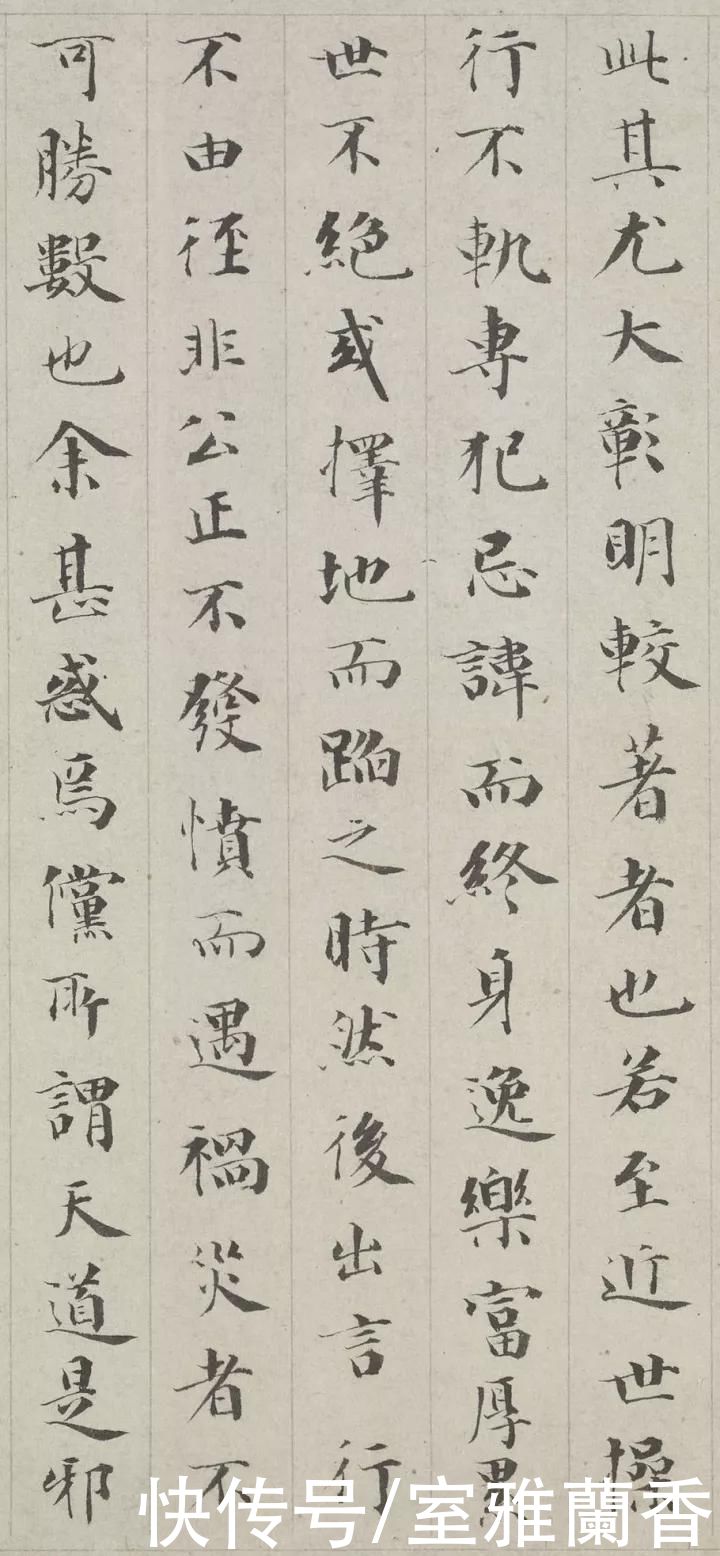 此其尤大彰明較著者也若至近世操
行不軌專犯忌諱而終身逸樂富厚累
世不絕或擇地而蹈之時然後出言行
不由徑非公正不發憤而遇禍災者不
可勝數也余甚惑焉儻所謂天道是邪
快传号/室雅蘭香